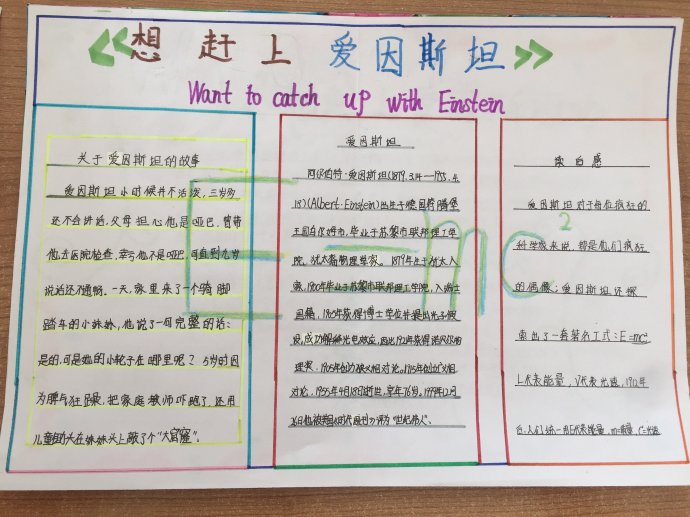 《想 赶上 爱因斯坦》
Want to catch up with Einstein
关于爱因斯坦的故事
爱因斯坦小时候并不活泼,三岁多
还不会讲话,父母担心他是哑巴,曾带
他去医院检查,幸亏他不是哑巴,可直到九岁
说话还不通畅。一天,家里来了一个骑脚
踏车的小妹妹,他说了一句完整的话:
是的,可是她的小轮子在哪里呢?5岁时因
为脾气狂躁,把家庭教师吓跑了,还用
儿童锄头在妹妹头上敲了个"大窟窿"。
爱因斯坦
阿尔伯特·爱因斯坦(1879.3.14—1955.4.
18)(Albert·Einstein)出生于德国符腾堡
王国乌尔姆市,毕业于苏黎世联邦理工学
院,犹太裔物理学家。1879年出生于犹太人
家,1900年毕业于苏黎世联邦理工学院,入瑞士
国籍,1905年获得博士学位并提出光子假
设,成功解释光电效应,因此1921年获得诺贝尔物
理奖,1905年创立狭义相对论。1915年创立广义相
对论,1955年4月18日逝世,享年76岁。1999年12月
26日他被美国《时代周刊》评为"世纪伟人"。
爱因斯坦对于每位疯狂的
科学家来说,都是他们疯狂
的偶像;爱因斯坦还探
索出了一套著名公式:E=mc²
L代表能量,V代表光速,1912年
后,人们统一用E代表能量,m=质量,C=光速
E=mc²